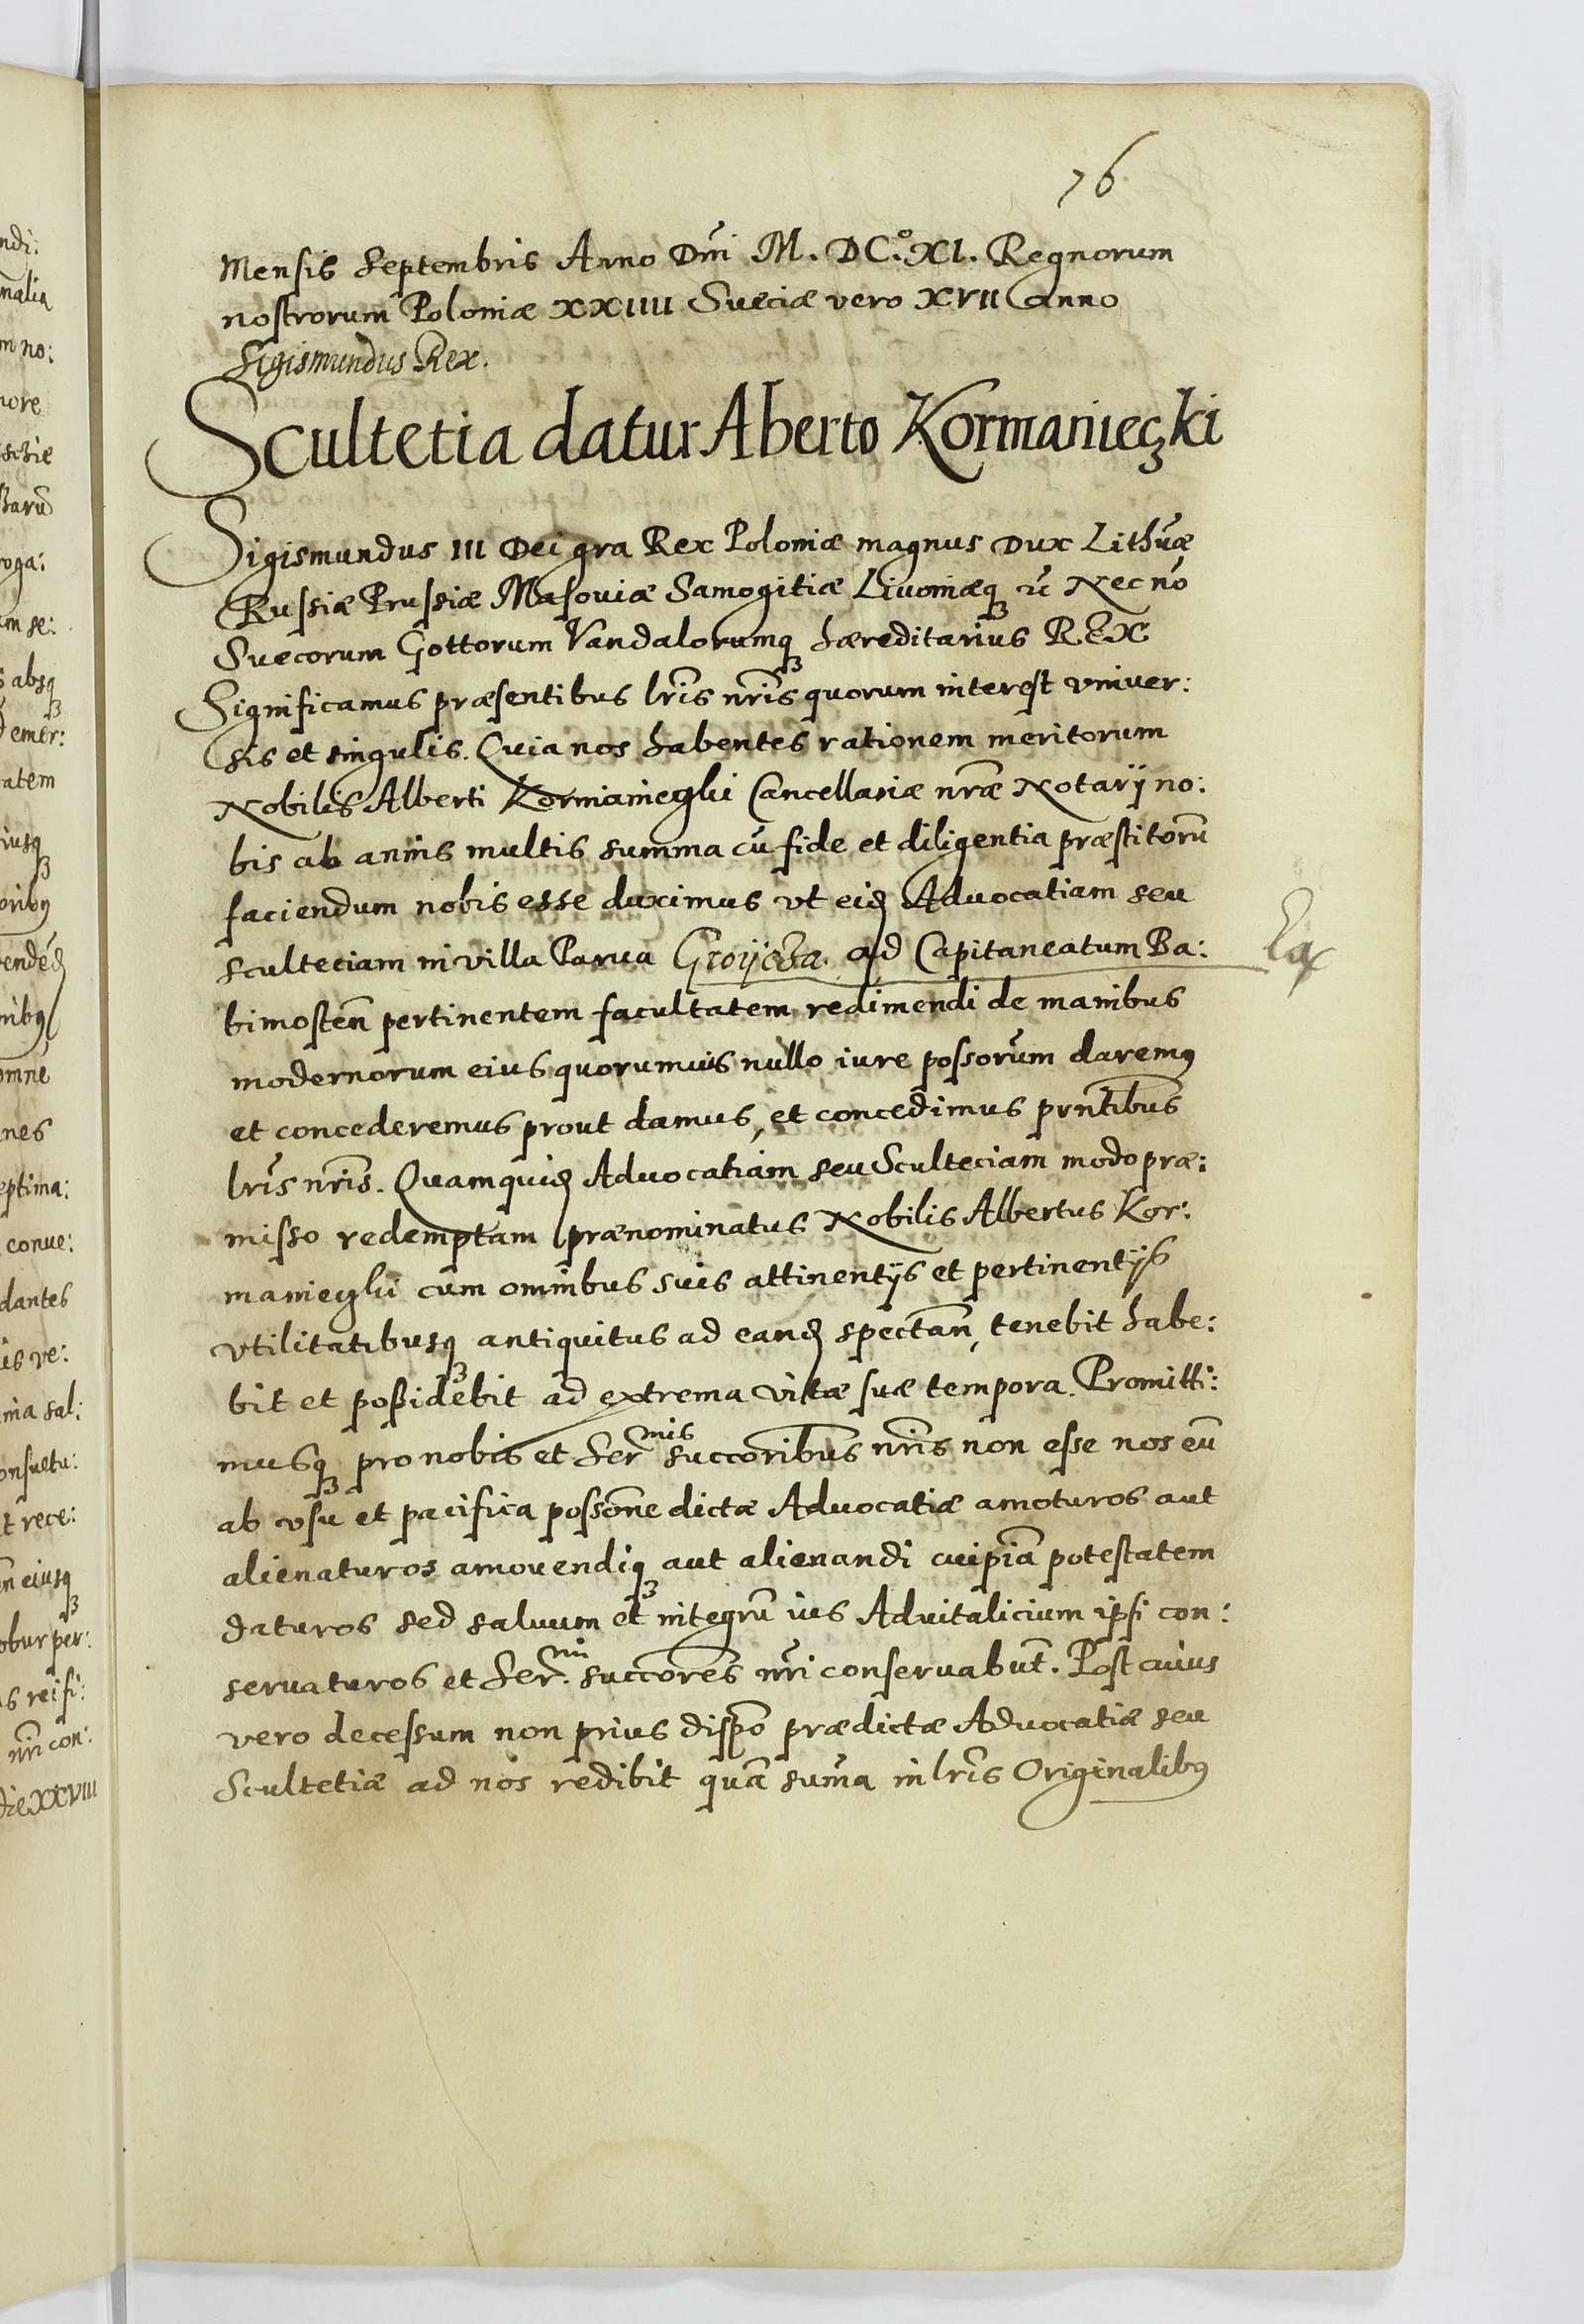 76
Mensis Septembris Anno Dñi M. DC.º XI. Regnorum
nostrorum Poloniæ XXIIII Sueciæ vero XVII anno
Sigismundus Rex.
Scultetia datur Aberto Kormanieczki
Sigismundus III Dei gra Rex Poloniæ magnus Dux Lithuæ
Russiæ Prussiæ Masouiæ Samogitiæ Liuoniæq Necnō
Suecorum Gottorum Vandalorumq hæreditarius REX
Significamus præsentibus lris nris quorum interest vniuer:
sis et singulis. Quia nos habentes rationem meritorum
Nobilis Alberti Kormanieczki Cancellariæ nræ Notarij no:
bis ab annis multis summa cū fide et diligentia præstitorū
faciendum nobis esse duximus vt eid Aduocatiam seu
sculteciam in villa Parua Groijcza ad Capitaneatum Ba:
bimosteñ pertinentem facultatem redimendi de manibus
modernorum eius quorumuis nullo iure possorum daremus
et concederemus prout damus, et concedimus prntibus
lris nris. Quamquid Aduocatiam seu Sculteciam modo præ:
misso redemptam prænominatus Nobilis Albertus Kor:
manieczki cum omnibus suis attinentijs et pertinentijs
vtilitatibusq antiquitus ad eand spectañ, tenebit habe:
bit et poßidebit ad extrema vitæ suæ tempora. Promitti:
musq pro nobis et Ser mis succoribus nris non esse nos eū
ab vsu et pacifica possone dictæ Aduocatiæ amoturos aut
alienaturos amouendiq aut alienandi cuipiā potestatem
daturos sed saluum et integrū ius Aduitalicium ipsi con:
seruaturos et Ser. mi succores nri conseruabūt. Post cuius
vero decessum non prius dispō prædictæ Aduocatiæ seu
Scultetiæ ad nos redibit quā suma in lris Originalibus